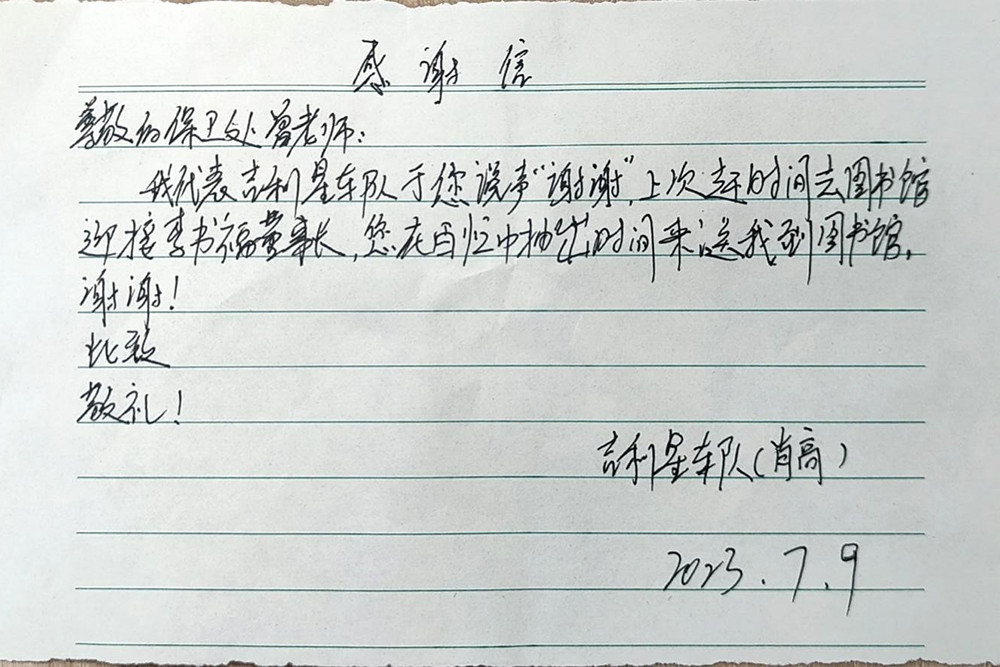 感谢信
尊敬的保卫处曾老师：
我代表吉利星车队于您说声“谢谢”，上次赶时间去图书馆
迎接李书福董事长，您在百忙中抽出时间来送我到图书馆。
谢谢！
此致
敬礼！
吉利星车队（肖高）
2023.7.9